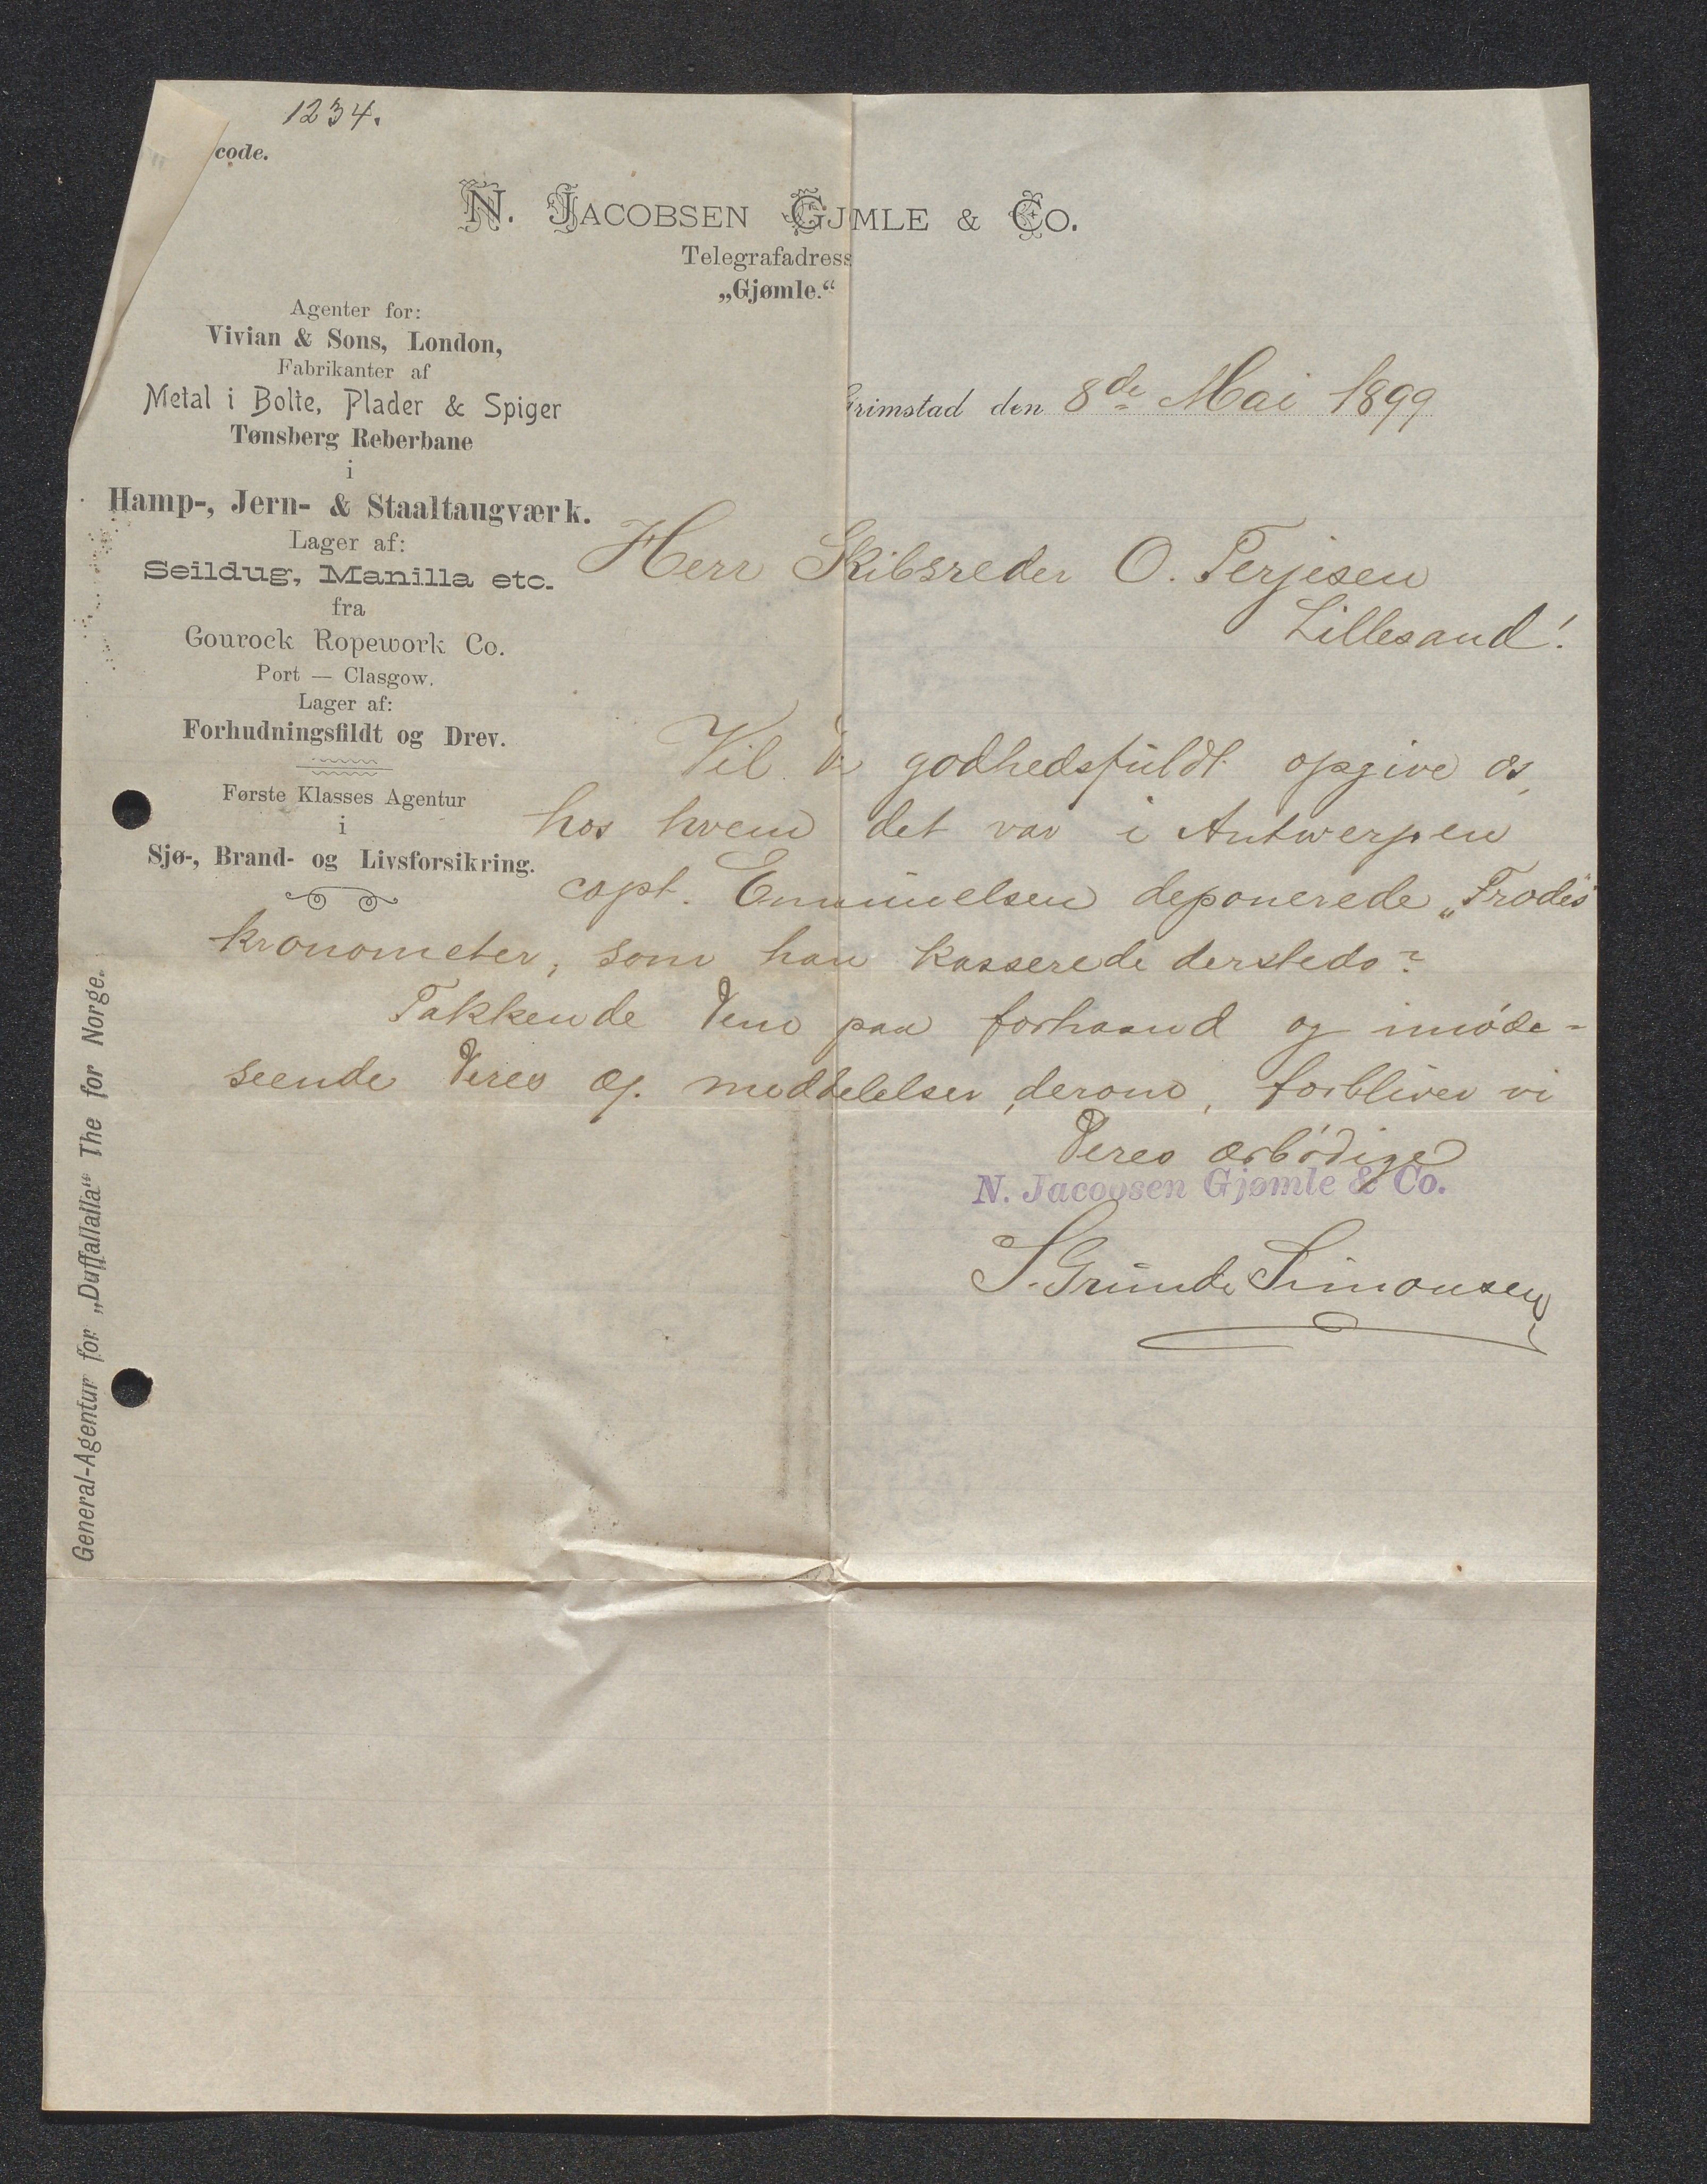 1234.
code.
N. JACOBSEN GJMLE & CO.
Telegrafadress
„Gjømle.“
Agenter for:
Vivian & Sons, London,
Fabrikanter af
Metal i Bolte, Plader & Spiger
Tønsberg Reberbane
i
Hamp-, Jern- & Staaltaugværk.
Lager af:
Seildug, Manilla etc.
fra
Gourock Ropework Co.
Port — Clasgow.
Lager af:
Forhudningsfildt og Drev.
Første Klasses Agentur
i
Sjø-, Brand- og Livsforsikring.
General-Agentur for „Duffallalla“ The for Norge.
Grimstad den 8de Mai 1899
Herr Skibsreder O. Terjesen
Lillesand!
Vil De godhedsfuldt opgive os,
hos hvem det var i Antwerpen
capt. Emanuelsen deponerede „Frodes“
kronometer, som han kasserede dersteds?
Takkende Dem paa forhaand og imøde-
seende Deres æg. meddelelser derom, forbliver vi
Deres ærbødige
N. Jacobsen Gjømle & Co.
S. Grunde Simonsen